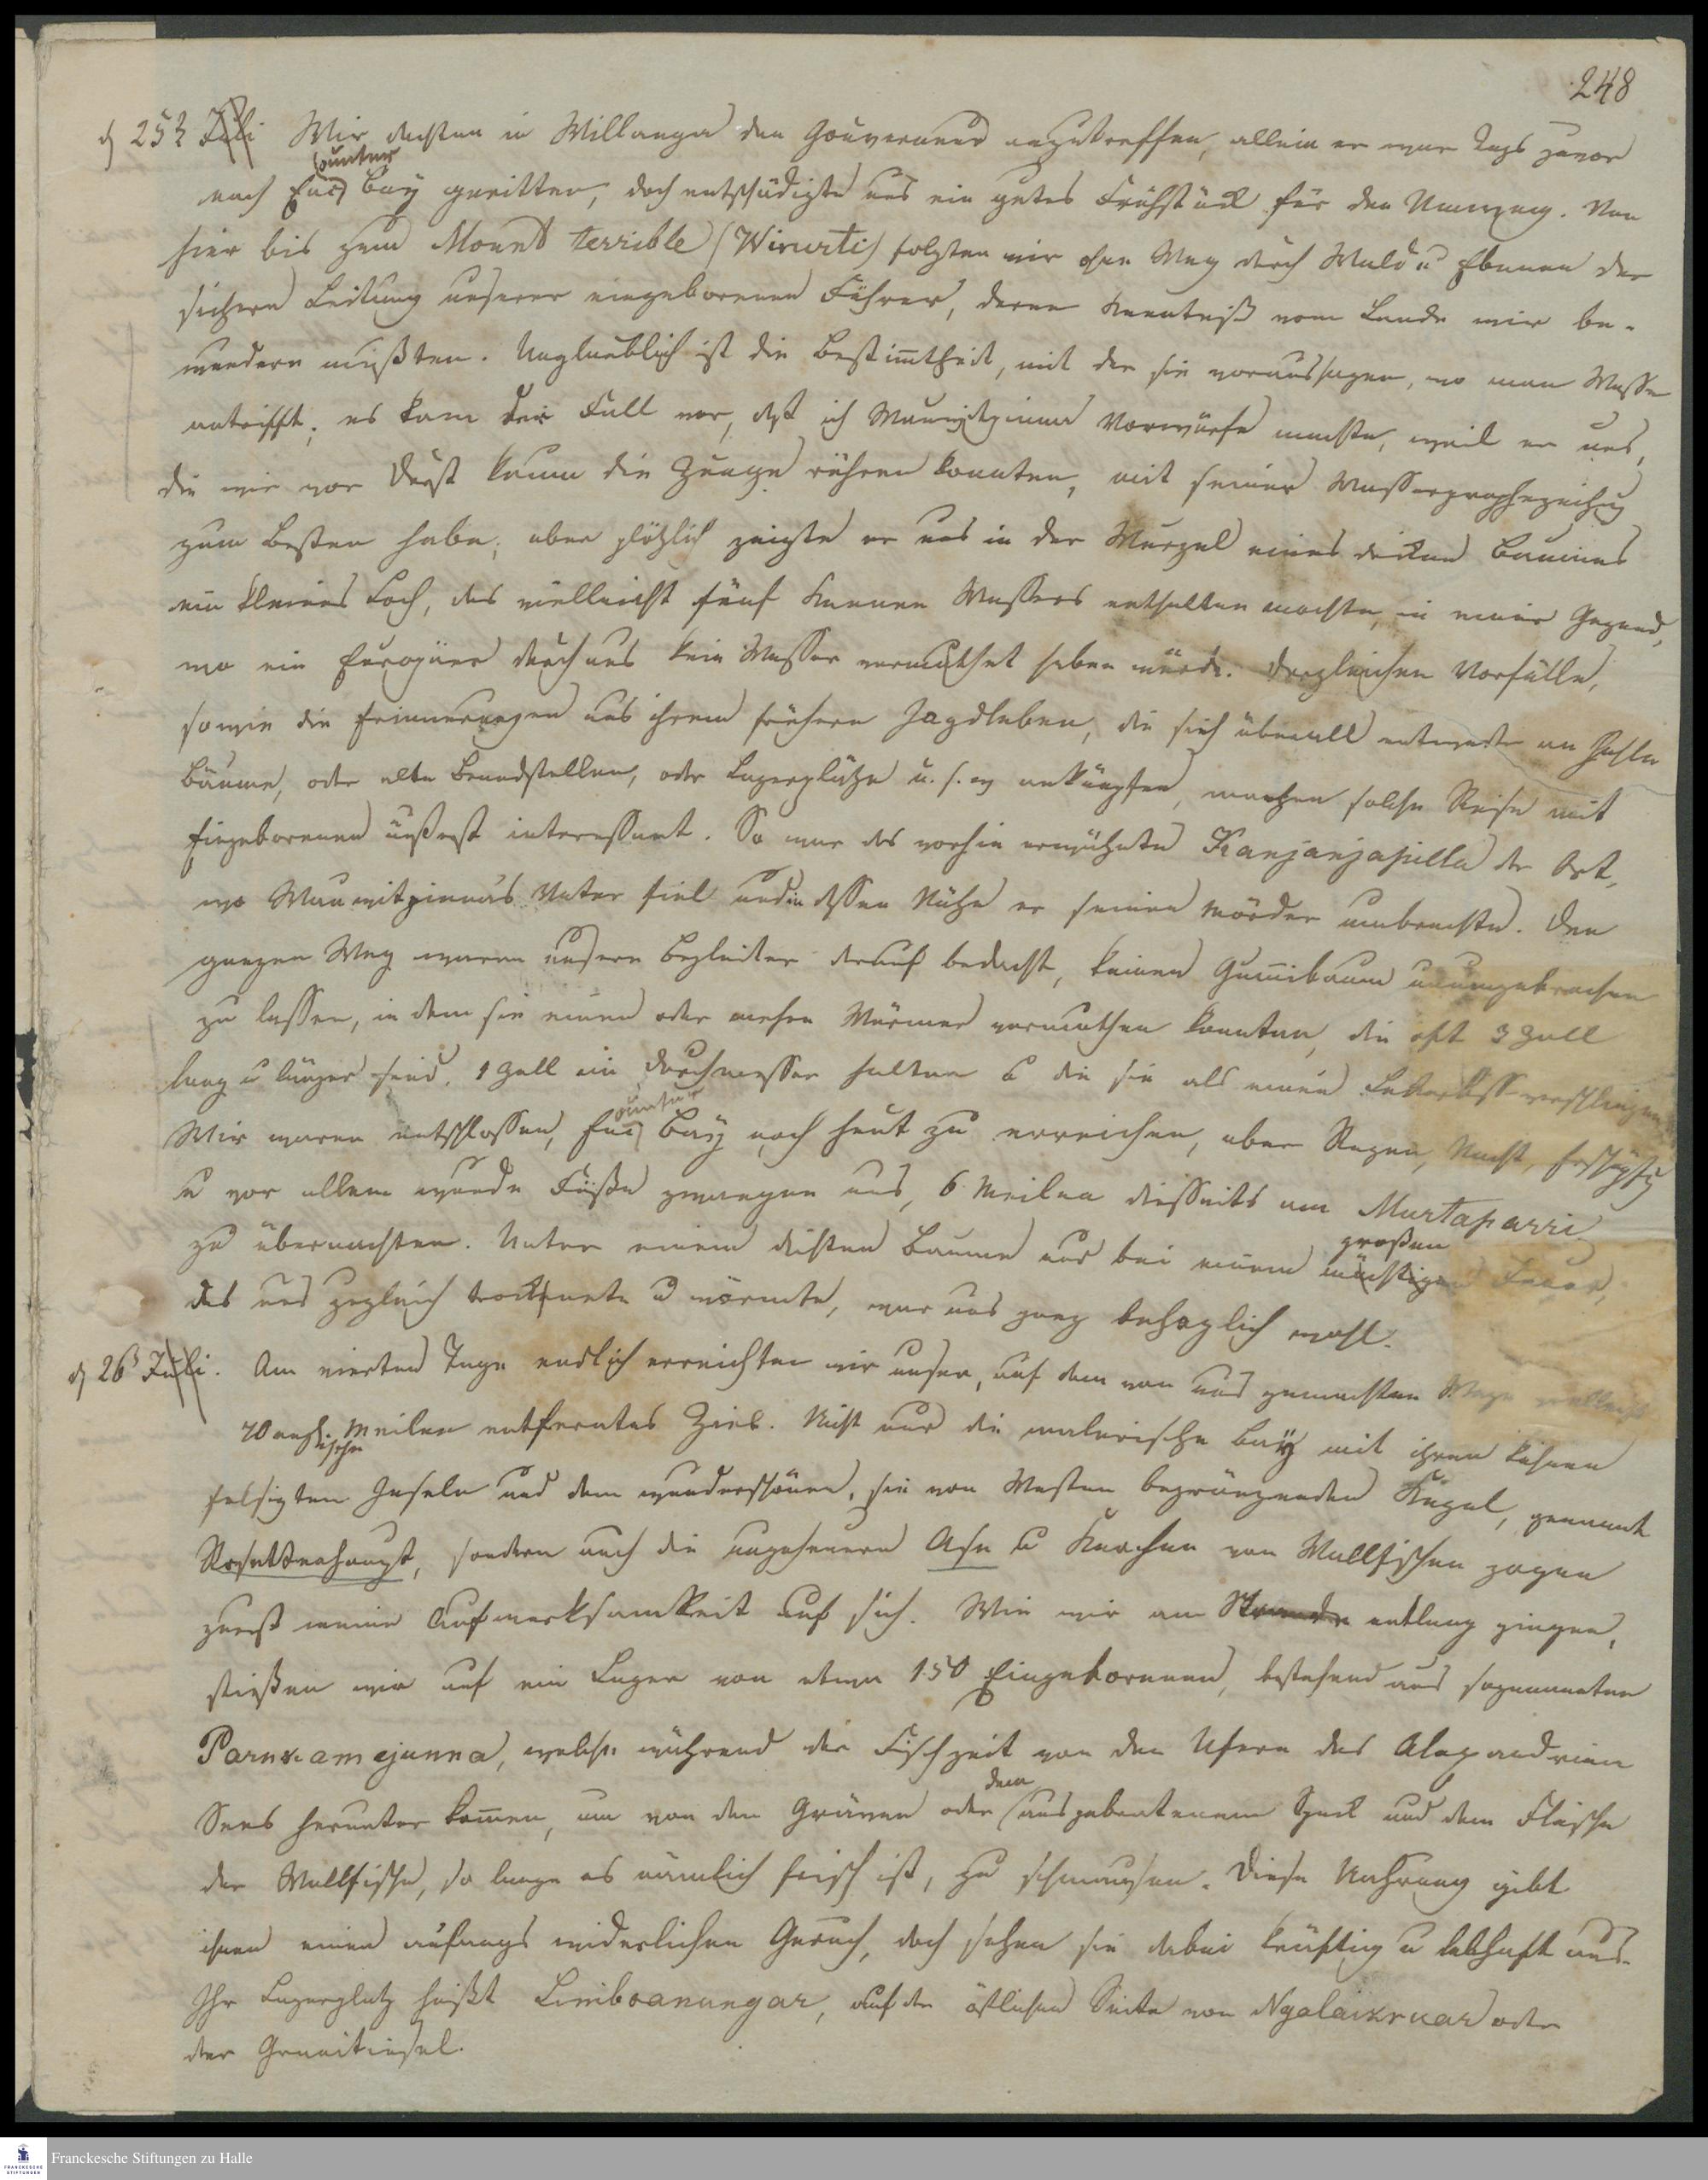 248
d 25t Juli Wir dachten in Willanga den Gouverneur anzutreffen, allein er war Tags zuvor
ounter
nach Enc Bay geritten, doch entschädigte uns ein gutes Frühstück für den Umweg. Von
hier bis zum Mount terrible (Wirurti) folgten wir ohne Weg durch Wald u Ebenen der
sichern Leitung unserer eingeborenen Führer, deren Kenntniß vom Lande wir be-
wundern mußten. Unglaublich ist die Bestimtheit, mit der sie voraussagen, wo man Wasser
antrifft; es kam der Fall vor, daß ich Vorwürfe machte, weil er uns,
die wir vor Durst kaum die Zunge rühren konnten, mit seiner Wasserprophezeihung
zum Besten habe; aber plötzlich zeigte er uns in der Wurzel eines dicken Baumes
ein kleines Loch, das vielleicht fünf Kannen Wassers enthalten mochte, in einer Gegend,
wo ein Europäer durchaus kein Wasser vermuthet haben würde. Dergleichen Vorfälle,
sowie die Erinnerungen aus ihrem frühern Jagdleben, die sich überall entweder an hohle
Bäume, oder alte Brandstellen, oder Lagerplätze u. s. w anknüpfen, machen solche Reise mit
Eingeborenen äußerst interessant. So war das vorhin erwähnte Kanjanjapilla der Ort,
wo Vater fiel und in dessen Nähe er seinen Mörder umbrachte. Den
ganzen Weg waren unsere Begleiter darauf bedacht, keinen Gumibaum
zu lassen, in dem sie einen oder mehre Würmer vermuthen konnten, die oft 3 Zoll
lang u länger sind, 1 Zoll im Durchmesser halten u die sie als einen Leckerbiss verschlingen.
ounter
Wir waren entschlossen, Enc Bay noch heut zu erreichen, aber Regen, Nacht, Erschöpfg
u vor allem wunde Füße zwangen uns, 6 Meilen diesseits am Murtaparri
großen
zu übernachten. Unter einem dichten Baume und bei einem mächtigen Feuer,
das uns zugleich trocknete u wärmte, war uns ganz behaglich wohl.
d 26t Juli. Am vierten Tage endlich erreichten wir unser, auf dem von uns gemachten Wege vielleicht
70 engl. Meilen entferntes Ziel. Nicht nur die malerische Bay mit ihren kühnen
ische
felsigten Inseln und dem wunderschönen, sie von Westen begränzenden Kegel, genannt
Rosettenhaupt, sondern auch die ungeheuern Ase u Knochen von Wallfischen zogen
zuerst meine Aufmerksamkeit auf sich. Wie wir am Strande entlang gingen,
stießen wir auf ein Lager von etwa 150 Eingeborenen, bestehend aus sogenannten
Parnkamejunna, welche während der Fischzeit von den Ufern des Alexandrien
dem
Sees herunter komen, um von den Gräven oder ausgebratenem Speck und dem Fleische
der Wallfische, so lange es nämlich frisch ist, zu schmausen. Diese Nahrung gibt
ihnen einen anfangs widerlichen Geruch, doch sehen sie dabei kräftig u lebhaft aus.
Ihr Lagerplatz heißt Limboanungar, auf der östlichen Seite von Ngalaikruar oder
der Granitinsel.
Franckesche Stiftungen zu Halle